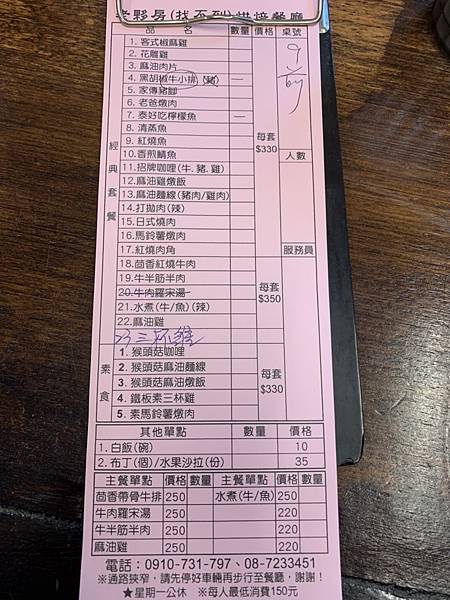 (找不到)烘焙餐廳
品名 數量 價格 桌號
經典套餐
1. 客式椒麻雞
2. 花雕雞
3. 麻油肉片
4. 黑胡椒牛小排(豬) 一
5. 家傳豬腳
6. 老爸燉肉
7. 泰好吃檸檬魚 一
8. 清蒸魚
9. 紅燒魚
10.香煎鯖魚
11.招牌咖哩(牛.豬.雞)
12.麻油雞燉飯
13.麻油麵線(豬肉/雞肉)
14.打拋肉(辣)
15.日式燒肉
16.馬鈴薯燉肉
17.紅燒肉角
每套
$330
9
前
人數
服務員
18.茴香紅燒牛肉
19.牛半筋半肉
20.牛肉羅宋湯
21.水煮(牛/魚)(辣)
22.麻油雞
每套
$350
23 三杯雞
素食
1. 猴頭菇咖哩
2. 猴頭菇麻油麵線
3. 猴頭菇麻油燉飯
4. 鐵板素三杯雞
5. 素馬鈴薯燉肉
每套
$330
其他單點 數量 價格
1. 白飯(碗) 10
2. 布丁(個)/水果沙拉(份) 35
主餐單點 價格 數量 主餐單點 價格 數量
茴香帶骨牛排 250 水煮(牛/魚) 250
牛肉羅宋湯 250 220
牛半筋半肉 250 220
麻油雞 250 220
電話：0910-731-797、08-7233451
※通路狹窄，請先停好車輛再步行至餐廳，謝謝！
★星期一公休 ※每人最低消費150元